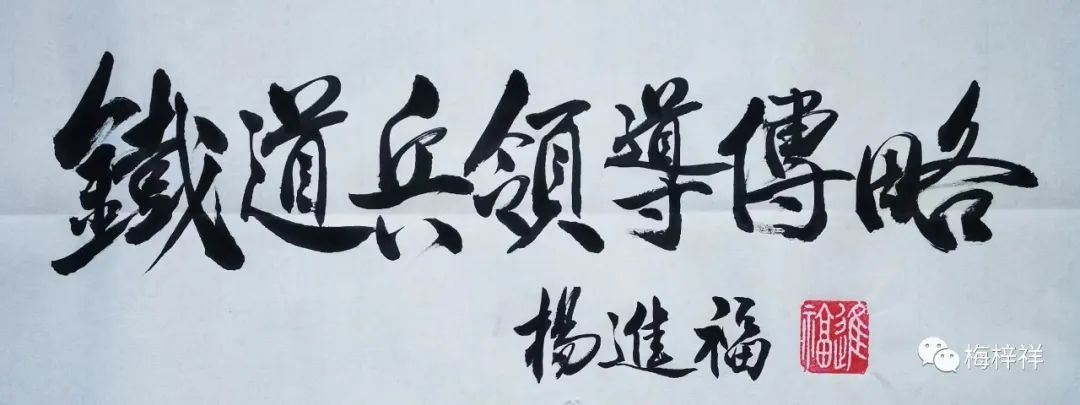 鐵道兵領導傳略
楊進福
進福
梅梓祥